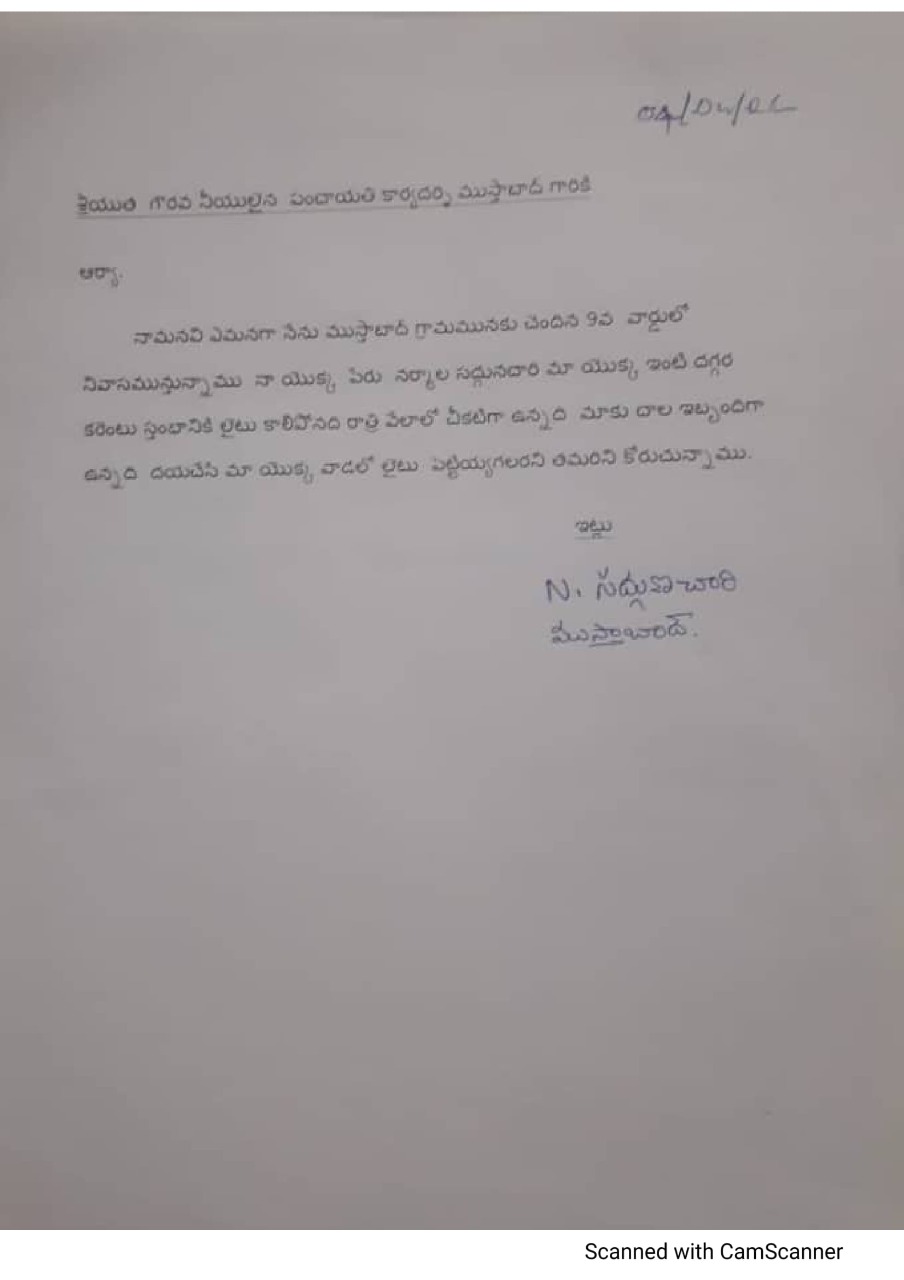 శ్రీయుత గౌరవ నీయులైన పంచాయతి కార్యదర్శి ముస్తాబాద్ గారికి
ఆర్యా.
నామనవి ఏమనగా నేను ముస్తాబాద్ గ్రామమునకు చెందిన 9వ వార్డులో
నివాసముస్తున్నాము నా యొక్క పేరు నర్మాల సద్గునచారి మా యొక్క ఇంటి దగ్గర
కరెంటు స్తంబానికి లైటు కాలిపోనది రాత్రి వేలాలో చీకటిగా ఉన్నది మాకు చాల ఇబ్బందిగా
ఉన్నది దయచేసి మా యొక్క వాడలో లైటు పెట్టియ్యగలరని తమరిని కోరుచున్నాము.
ఇట్లు
N. సద్గుణచారి
ముస్తాబాద్.
Scanned with CamScanner